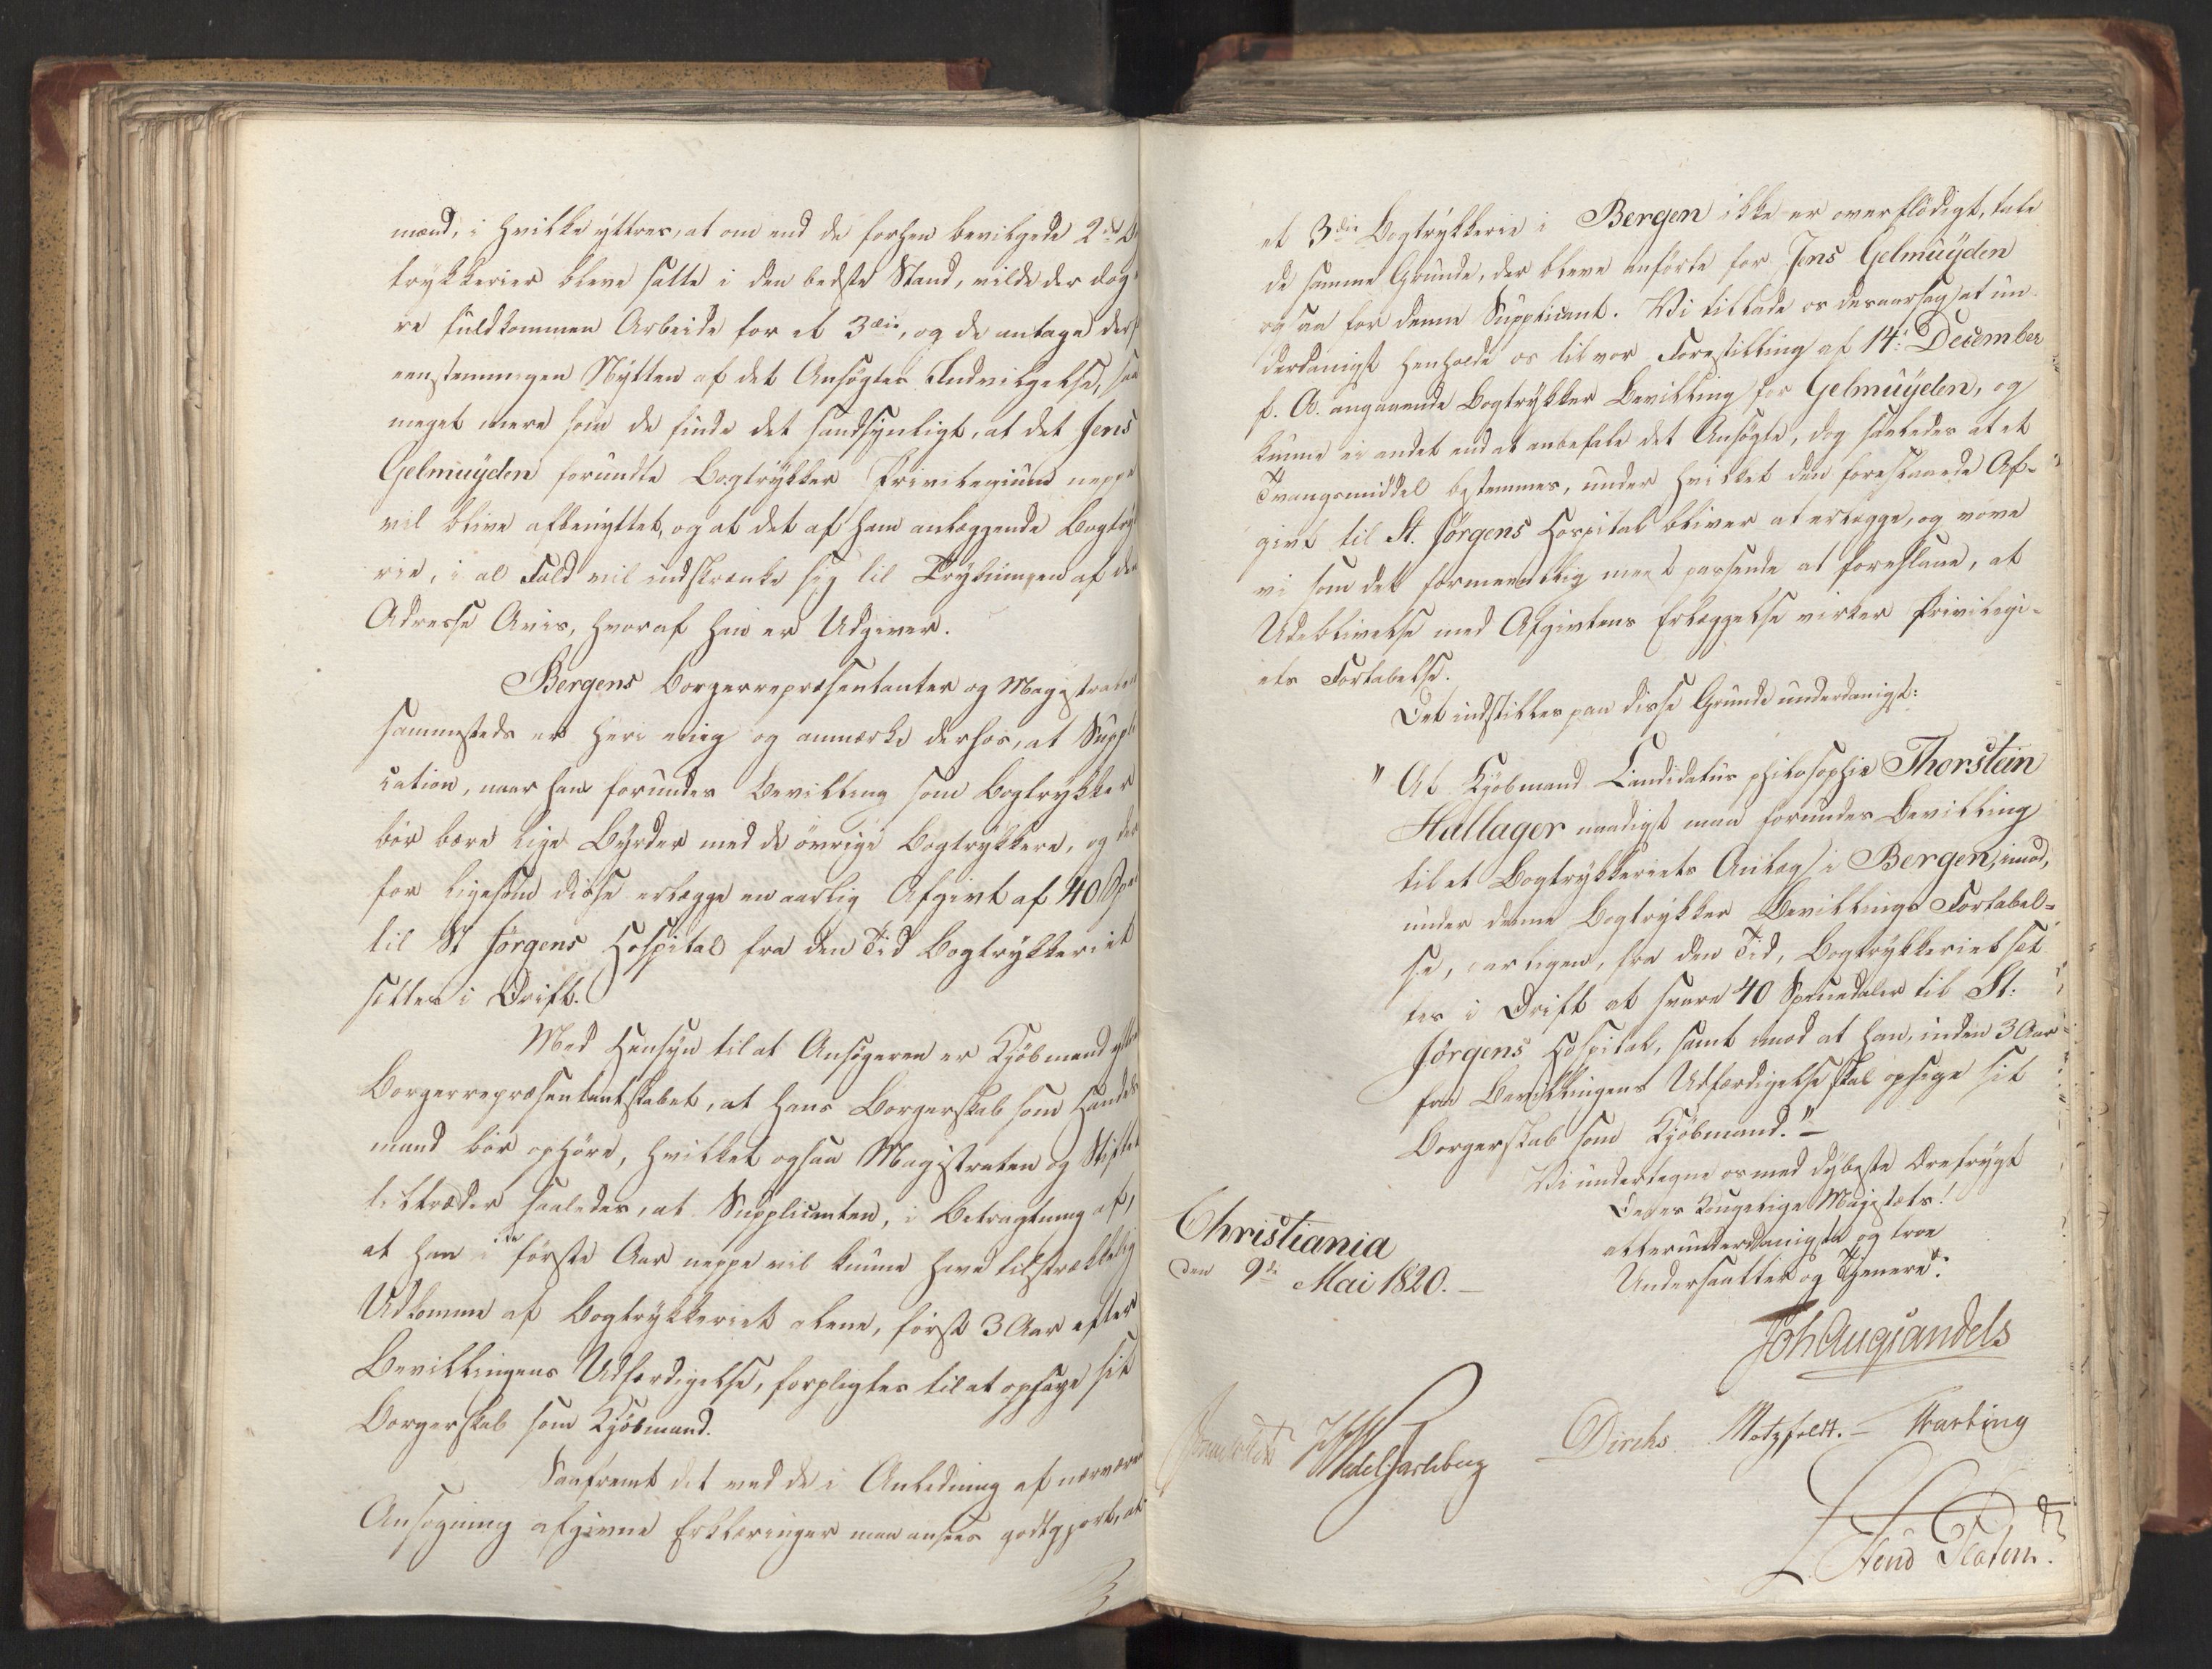 mænd, i hvilke yttres, at om end de forhen bevilgede 2de Bog
trykkerier bleve satte i den bedste Stand, vilde der dog
re fuldkommen Arbeide for et 3die, og de antage der
eenstemmigen Nytten af det Ansøgtes Indvilgelse, saa
meget mere som de finde det sandsynligt, at det Jens
Gelmuyden forundte Bogtrykker Privilegium neppe
vil blive afbenyttet, og at det af ham anlæggende Bogtryk
rie, i al Fald vil indskrænke sig til Trykningen af den
Adresse Avis, hvoraf han er Udgiver.
Bergens Borgerrepræsentanter og Magistraten
sammesteds er heri enig og anmærke derhos, at Suppli
cation, naar han forundes Bevilling som Bogtrykker
bør bære lige Byrder med de øvrige Bogtrykkere, og der
for ligesom disse erlægge en aarlig Afgivt af 40 Spd
til St Jørgens Hospital fra den Tid Bogtrykkeriet
sættes i Drift.
Med Hensyn til at Ansøgeren er Kjøbmand yttrer
Borgerrepræsentantskabet, at hans Borgerskab som Handels
mand bør ophøre, hvilket ogsaa Magistraten og Stiftet
tiltræder saaledes, at Supplicanten, i Betragtning af,
at han i de første Aar neppe vil kunne have tilstrækkelig
Udkomme af Bogtrykkeriet alene, først 3 Aar efter
Bevillingens Udfærdigelse, forpligtes til at opsige sit
Borgerskab som Kjøbmand.
Saafremt det ved de i Anledning af nærvære
Ansøgning afgivne Erklæringer maa ansees godtgjort, at
et 3die Bogtrykkerie i Bergen ikke er overflødigt, tale
de samme Grunde, der bleve anførte for Jens Gelmuyden
ogsaa for denne Supplicant. Vi tillade os desaarsag at un
derdanigst henholde os til vor Forestilling af 14. December
f. A. angaaende Bogtrykker Bevilling for Gelmuyden, og
kunne ei andet end at anbefale det Ansøgte, dog saaledes at et
Tvangsmiddel bestemmes, under hvilket den foreslaaede Af-
givt til St. Jørgens Hospital bliver at erlægge, og vove
vi som det formeentlig meest passende at foreslaae, at
Udeblivelse med Afgivtens Erlæggelse virker Privilegi-
ets Fortabelse.
Det indstilles paa disse Grunde underdanigst:
" At Kjøbmand Candidatus philosophiæ Thorstein
Hallager naadigst maa forundes Bevilling
til et Bogtrykkeriets Anlæg i Bergen, imod,
under denne Bogtrykker Bevillings Fortabel=
se, aarligen, fra den Tid, Bogtrykkeriet sæt
tes i Drift at svare 40 Speciedaler til St:
Jørgens Hospital, samt imod at han, inden 3 Aar
fra Bevillingens Udfærdigelse skal opsige sit
Borgerskab som Kjøbmand."
Vi undertegne os med dybeste Ærefrygt
Deres Kongelige Majestæts!
allerunderdanigste og troe
Undersaatter og Tjenere.
Christiania
den 9de Mai 1820.
Joh Aug Sandels
Sommerhielm HWedelJarlsberg Diriks Motzfeldt. Krarting